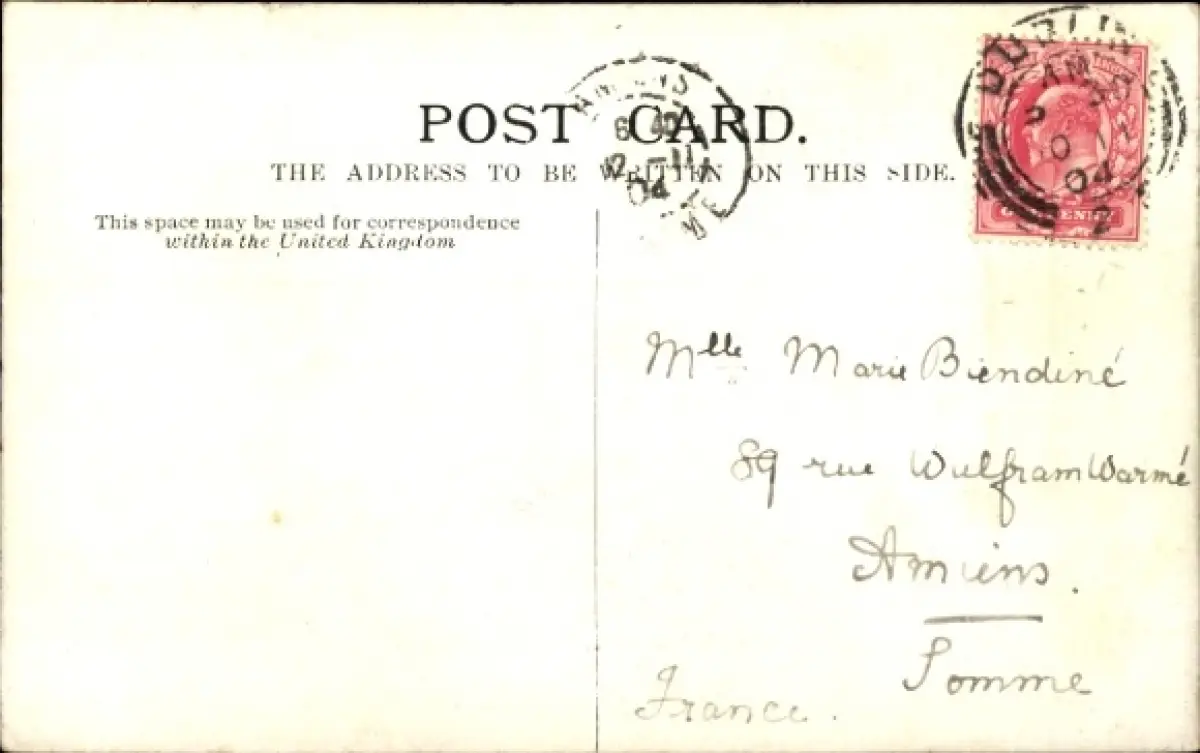 POST CARD.
THE ADDRESS TO BE WRITTEN ON THIS SIDE.
This space may be used for correspondence
within the United Kingdom
DUBLIN
AM
04
2
ONE PENNY
AMIENS
6 40
12 - 11
04
Mlle Marie Biendiné
89 rue Wulfram Warmé
Amiens.
Somme
France.